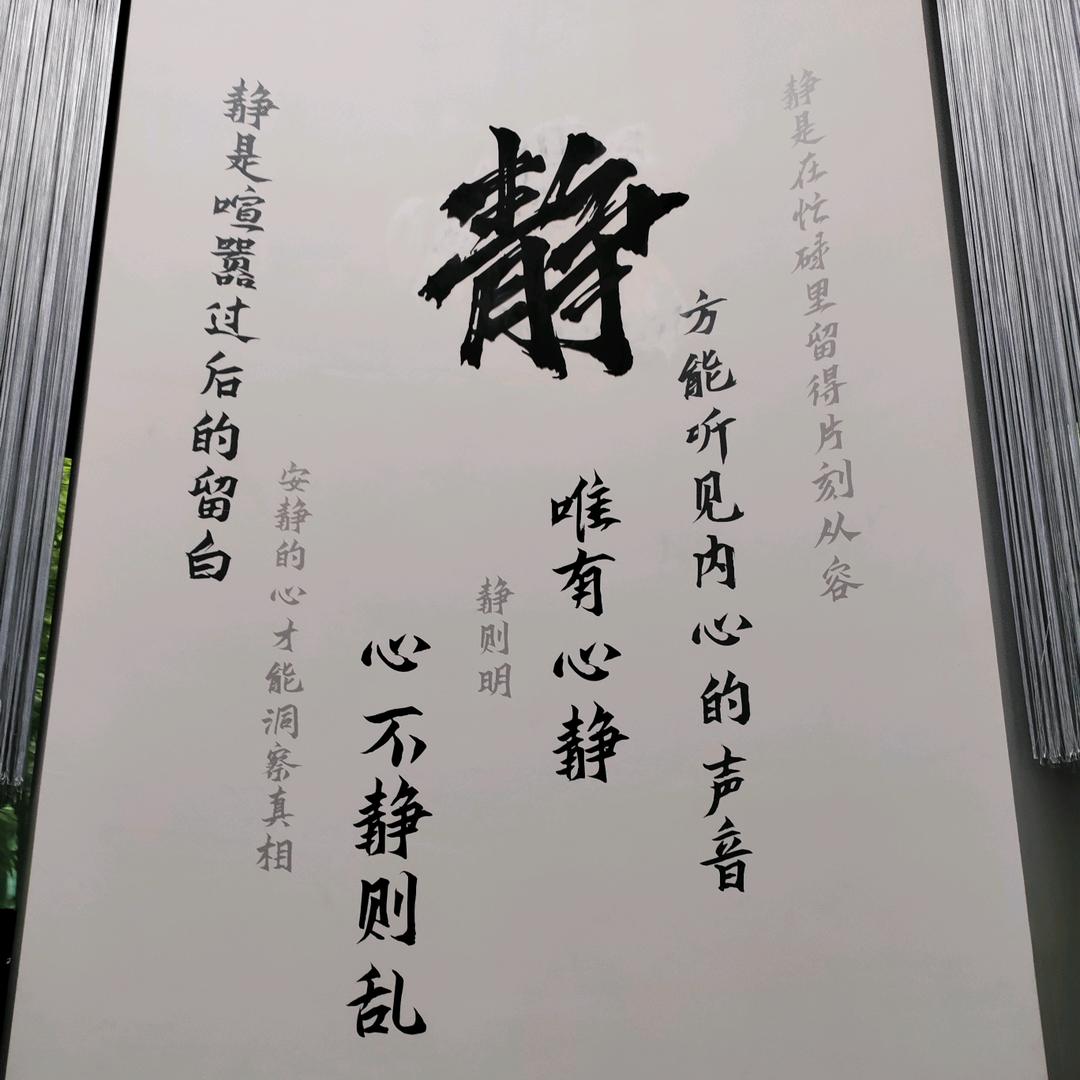 静
静是在忙碌里留得片刻从容
方能听见内心的声音
唯有心静
静则明
心不静则乱
安静的心才能洞察真相
静是喧嚣过后的留白